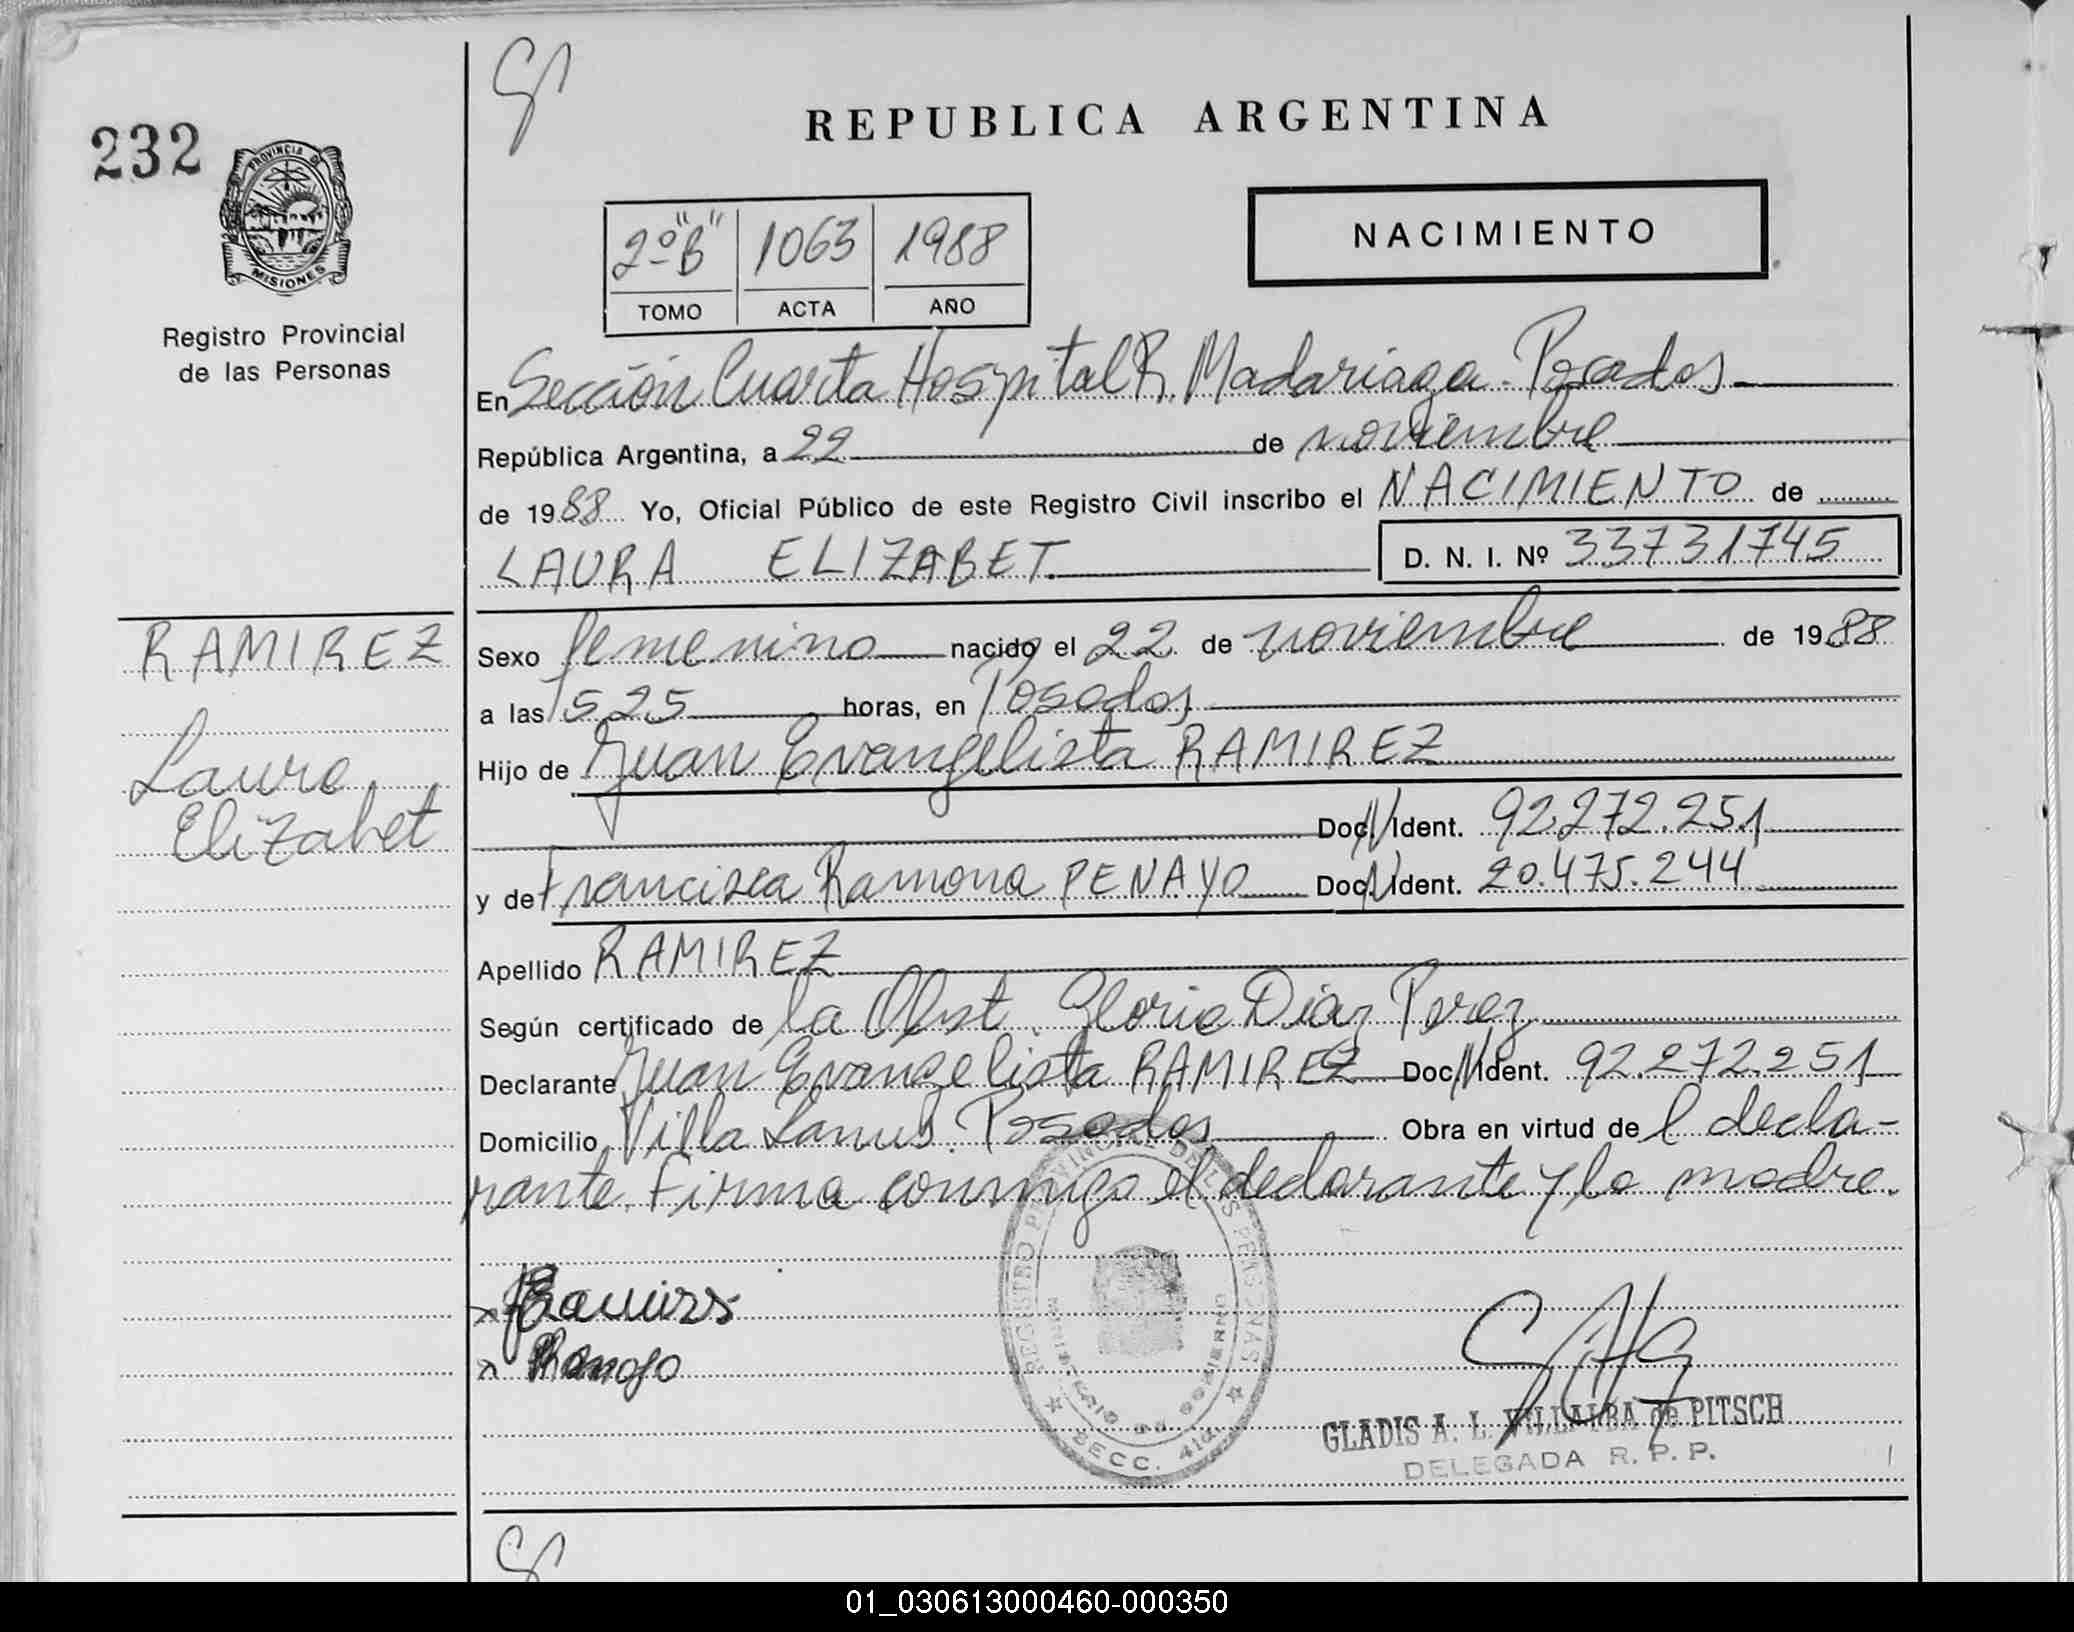 232
PROVINCIA DE
MISIONES
Registro Provincial
de las Personas
REPUBLICA ARGENTINA
2º "B" 1063 1988
TOMO ACTA AÑO
NACIMIENTO
En Sección Cuarta Hospital R. Madariaga - Posadas
República Argentina, a 22 de noviembre
de 1988 Yo, Oficial Público de este Registro Civil inscribo el NACIMIENTO de
LAURA ELIZABET D. N. I. Nº 33731745
RAMIREZ
Laura
Elizabet
Sexo femenino nacido el 22 de noviembre de 1988
a las 1525 horas, en Posadas
Hijo de Juan Evangelista RAMIREZ
Doc. Ident. 92.272.251
y de Francisca Ramona PENAYO Doc. Ident. 20.475.244
Apellido RAMIREZ
Según certificado de la Obst. Gloria Diaz Perez
Declarante Juan Evangelista RAMIREZ Doc. Ident. 92.272.251
Domicilio Villa Lanus. Posadas Obra en virtud de l decla-
rante. Firma conmigo el declarante y la madre.
REGISTRO PROVINCIAL DE LAS PERSONAS
MINISTERIO DE GOBIERNO
SECC. 4ta
GLADIS A. L. VILLALBA de PITSCH
DELEGADA R. P. P.
01_030613000460-000350